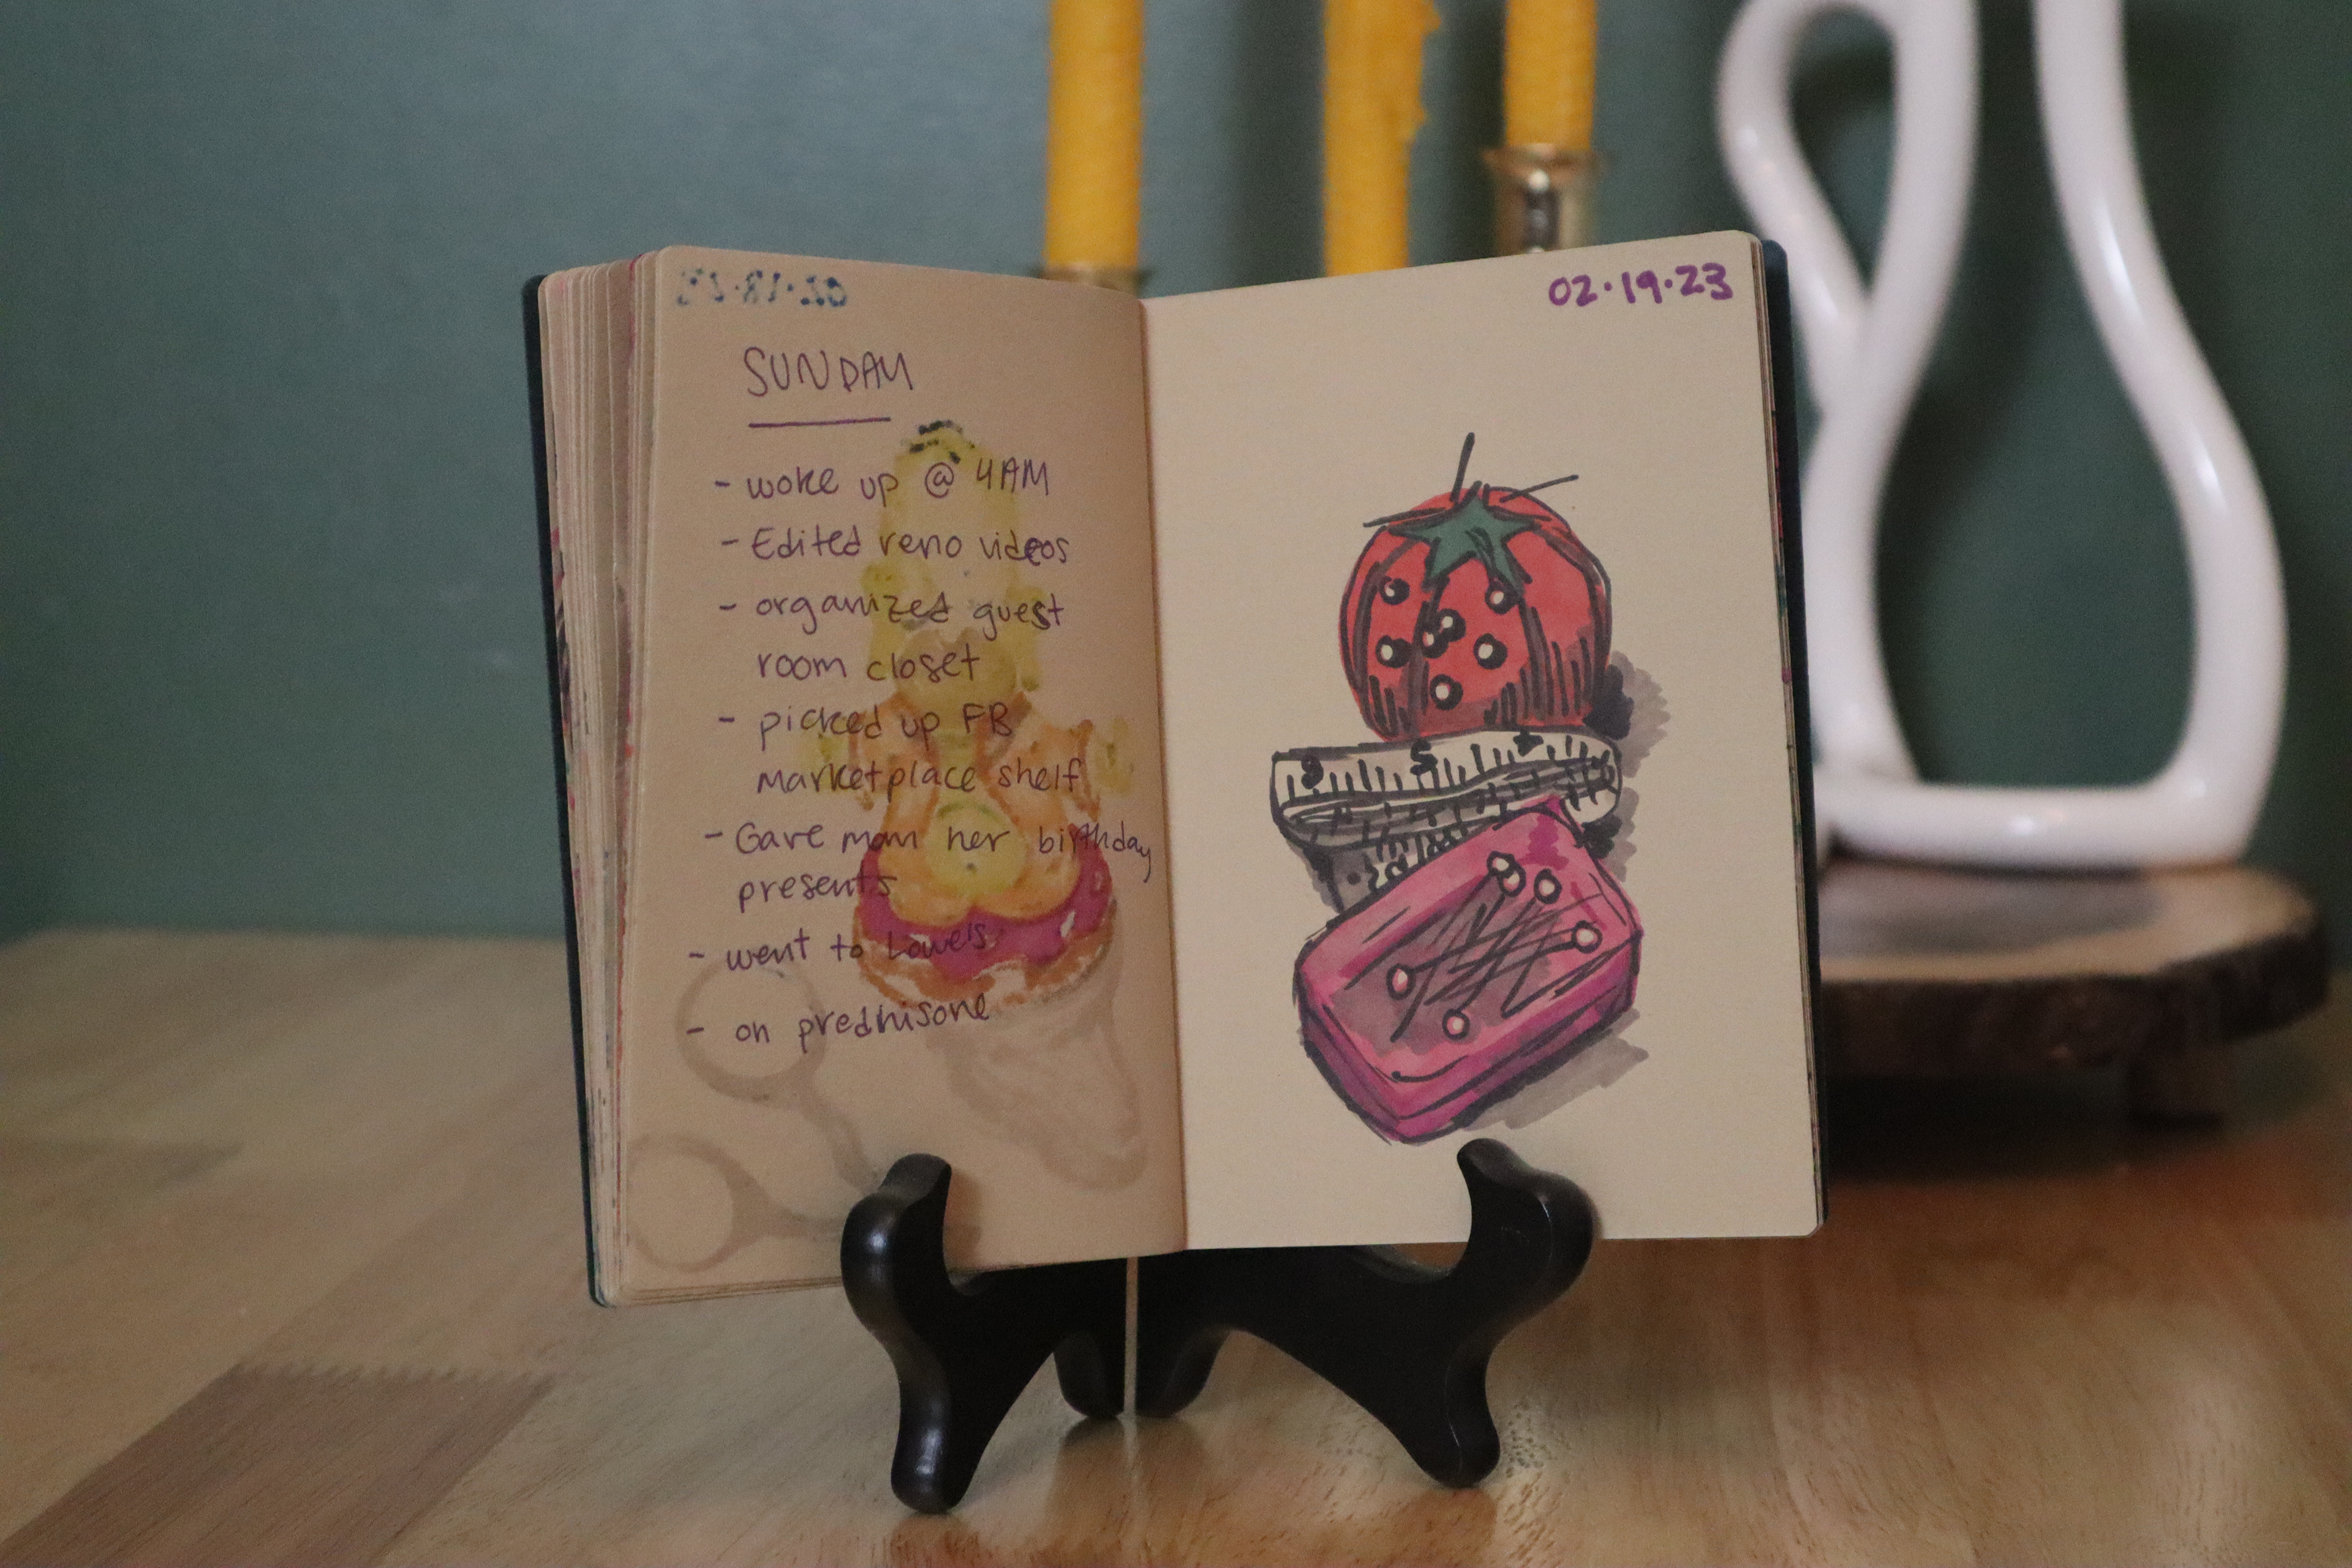 SUNDAY
- woke up @ 4AM
- Edited reno videos
- organized guest
room closet
- picked up FB
marketplace shelf
- Gave mom her birthday
presents
- went to Lowe's
- on prednisone
02.19.23